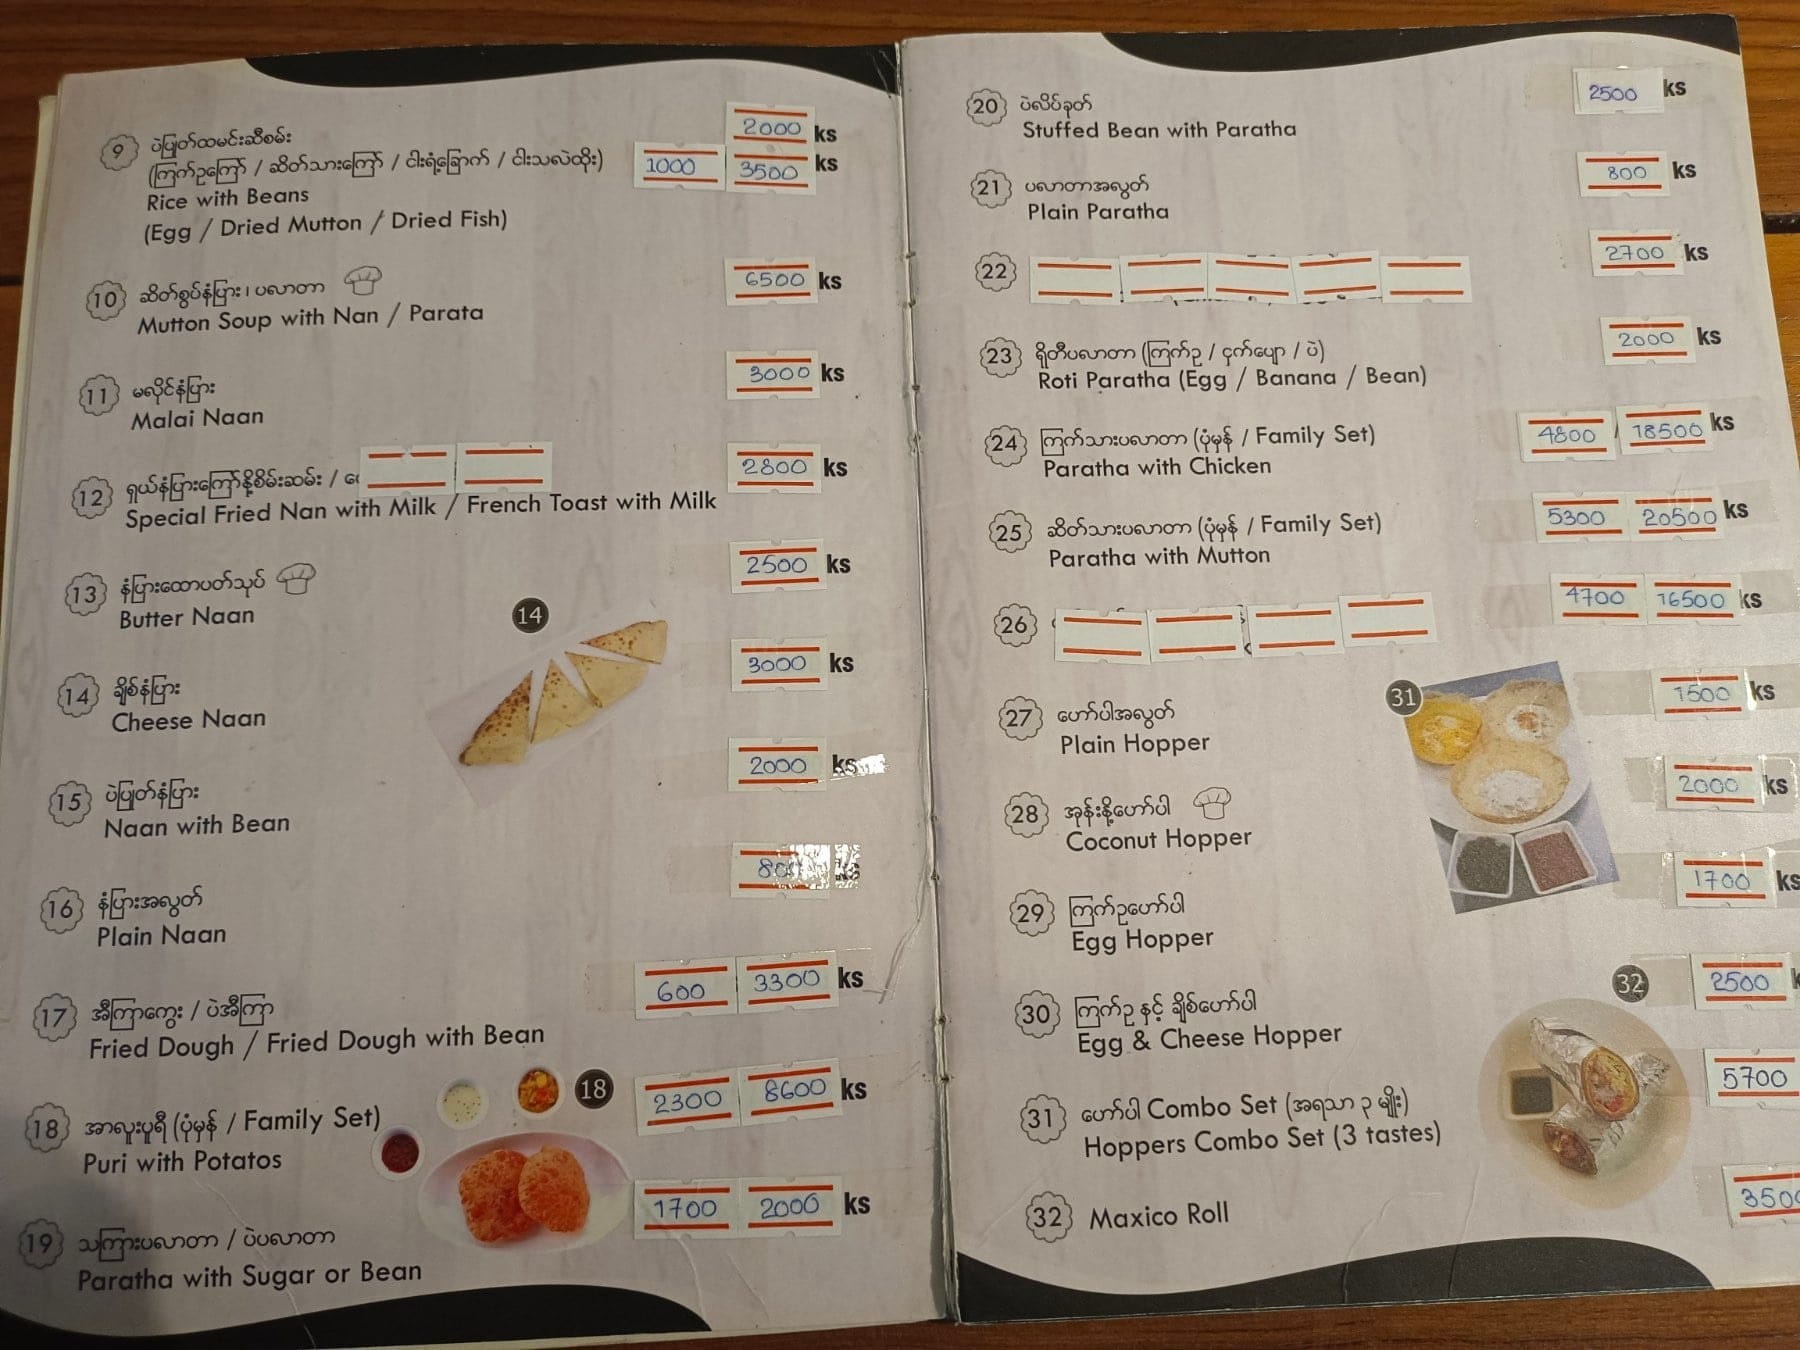 9 ပဲပြုတ်ထမင်းဆီစမ်း 2000 ks
(ကြက်ဥကြော် / ဆိတ်သားကြော် / ငါးရံ့ခြောက် / ငါးသလဲထိုး) 1000 3500 ks
Rice with Beans
(Egg / Dried Mutton / Dried Fish)
10 ဆိတ်စွပ်နံပြား၊ ပလာတာ 6500 ks
Mutton Soup with Nan / Parata
11 မလိုင်နံပြား 3000 ks
Malai Naan
12 ရှယ်နံပြားကြော်နို့စိမ်းဆမ်း / 2800 ks
Special Fried Nan with Milk / French Toast with Milk
13 နံပြားထောပတ်သုပ် 2500 ks
Butter Naan
14
14 ချိစ်နံပြား 3000 ks
Cheese Naan
15 ပဲပြုတ်နံပြား 2000 ks
Naan with Bean
16 နံပြားအလွတ် ks
Plain Naan
17 အီကြာကွေး / ပဲအီကြာ 600 3300 ks
Fried Dough / Fried Dough with Bean
18
18 အာလူးပူရီ (ပုံမှန် / Family Set) 2300 8600 ks
Puri with Potatos
19 သကြားပလာတာ / ပဲပလာတာ 1700 2000 ks
Paratha with Sugar or Bean
20 ပဲလိပ်ခုတ် 2500 ks
Stuffed Bean with Paratha
21 ပလာတာအလွတ် 800 ks
Plain Paratha
22 2700 ks
23 ရိုတီပလာတာ (ကြက်ဥ / ငှက်ပျော / ပဲ) 2000 ks
Roti Paratha (Egg / Banana / Bean)
24 ကြက်သားပလာတာ (ပုံမှန် / Family Set) 4800 / 18500 ks
Paratha with Chicken
25 ဆိတ်သားပလာတာ (ပုံမှန် / Family Set) 5300 20500 ks
Paratha with Mutton
26 4700 16500 ks
27 ဟော်ပါအလွတ် 1500 ks
Plain Hopper
31
28 အုန်းနို့ဟော်ပါ 2000 ks
Coconut Hopper
29 ကြက်ဥဟော်ပါ 1700 ks
Egg Hopper
30 ကြက်ဥ နှင့် ချိစ်ဟော်ပါ 2500
Egg & Cheese Hopper
32
31 ဟော်ပါ Combo Set (အရသာ ၃ မျိုး) 5700
Hoppers Combo Set (3 tastes)
32 Maxico Roll 3500